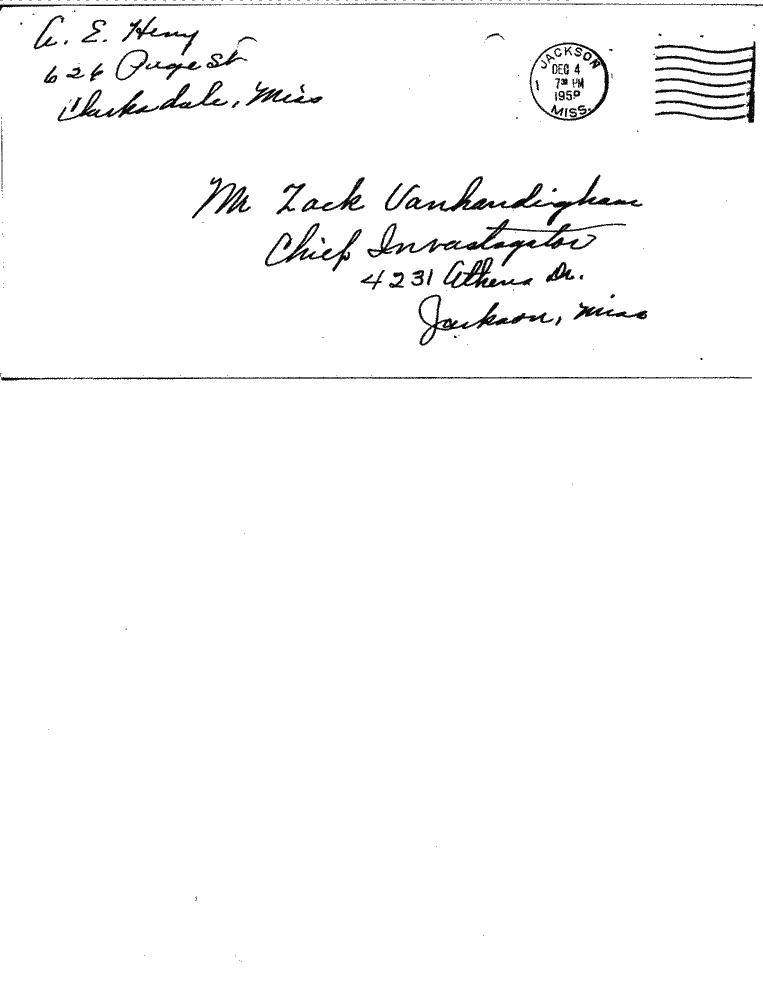 A. E. Henry
626 Page St
Clarksdale, Miss
JACKSON
DEC 4
7 30 PM
1
MISS.
Mr Zack Vanhandigham
Chief Invastagator
4231 Athens Dr.
Jackson, Miss